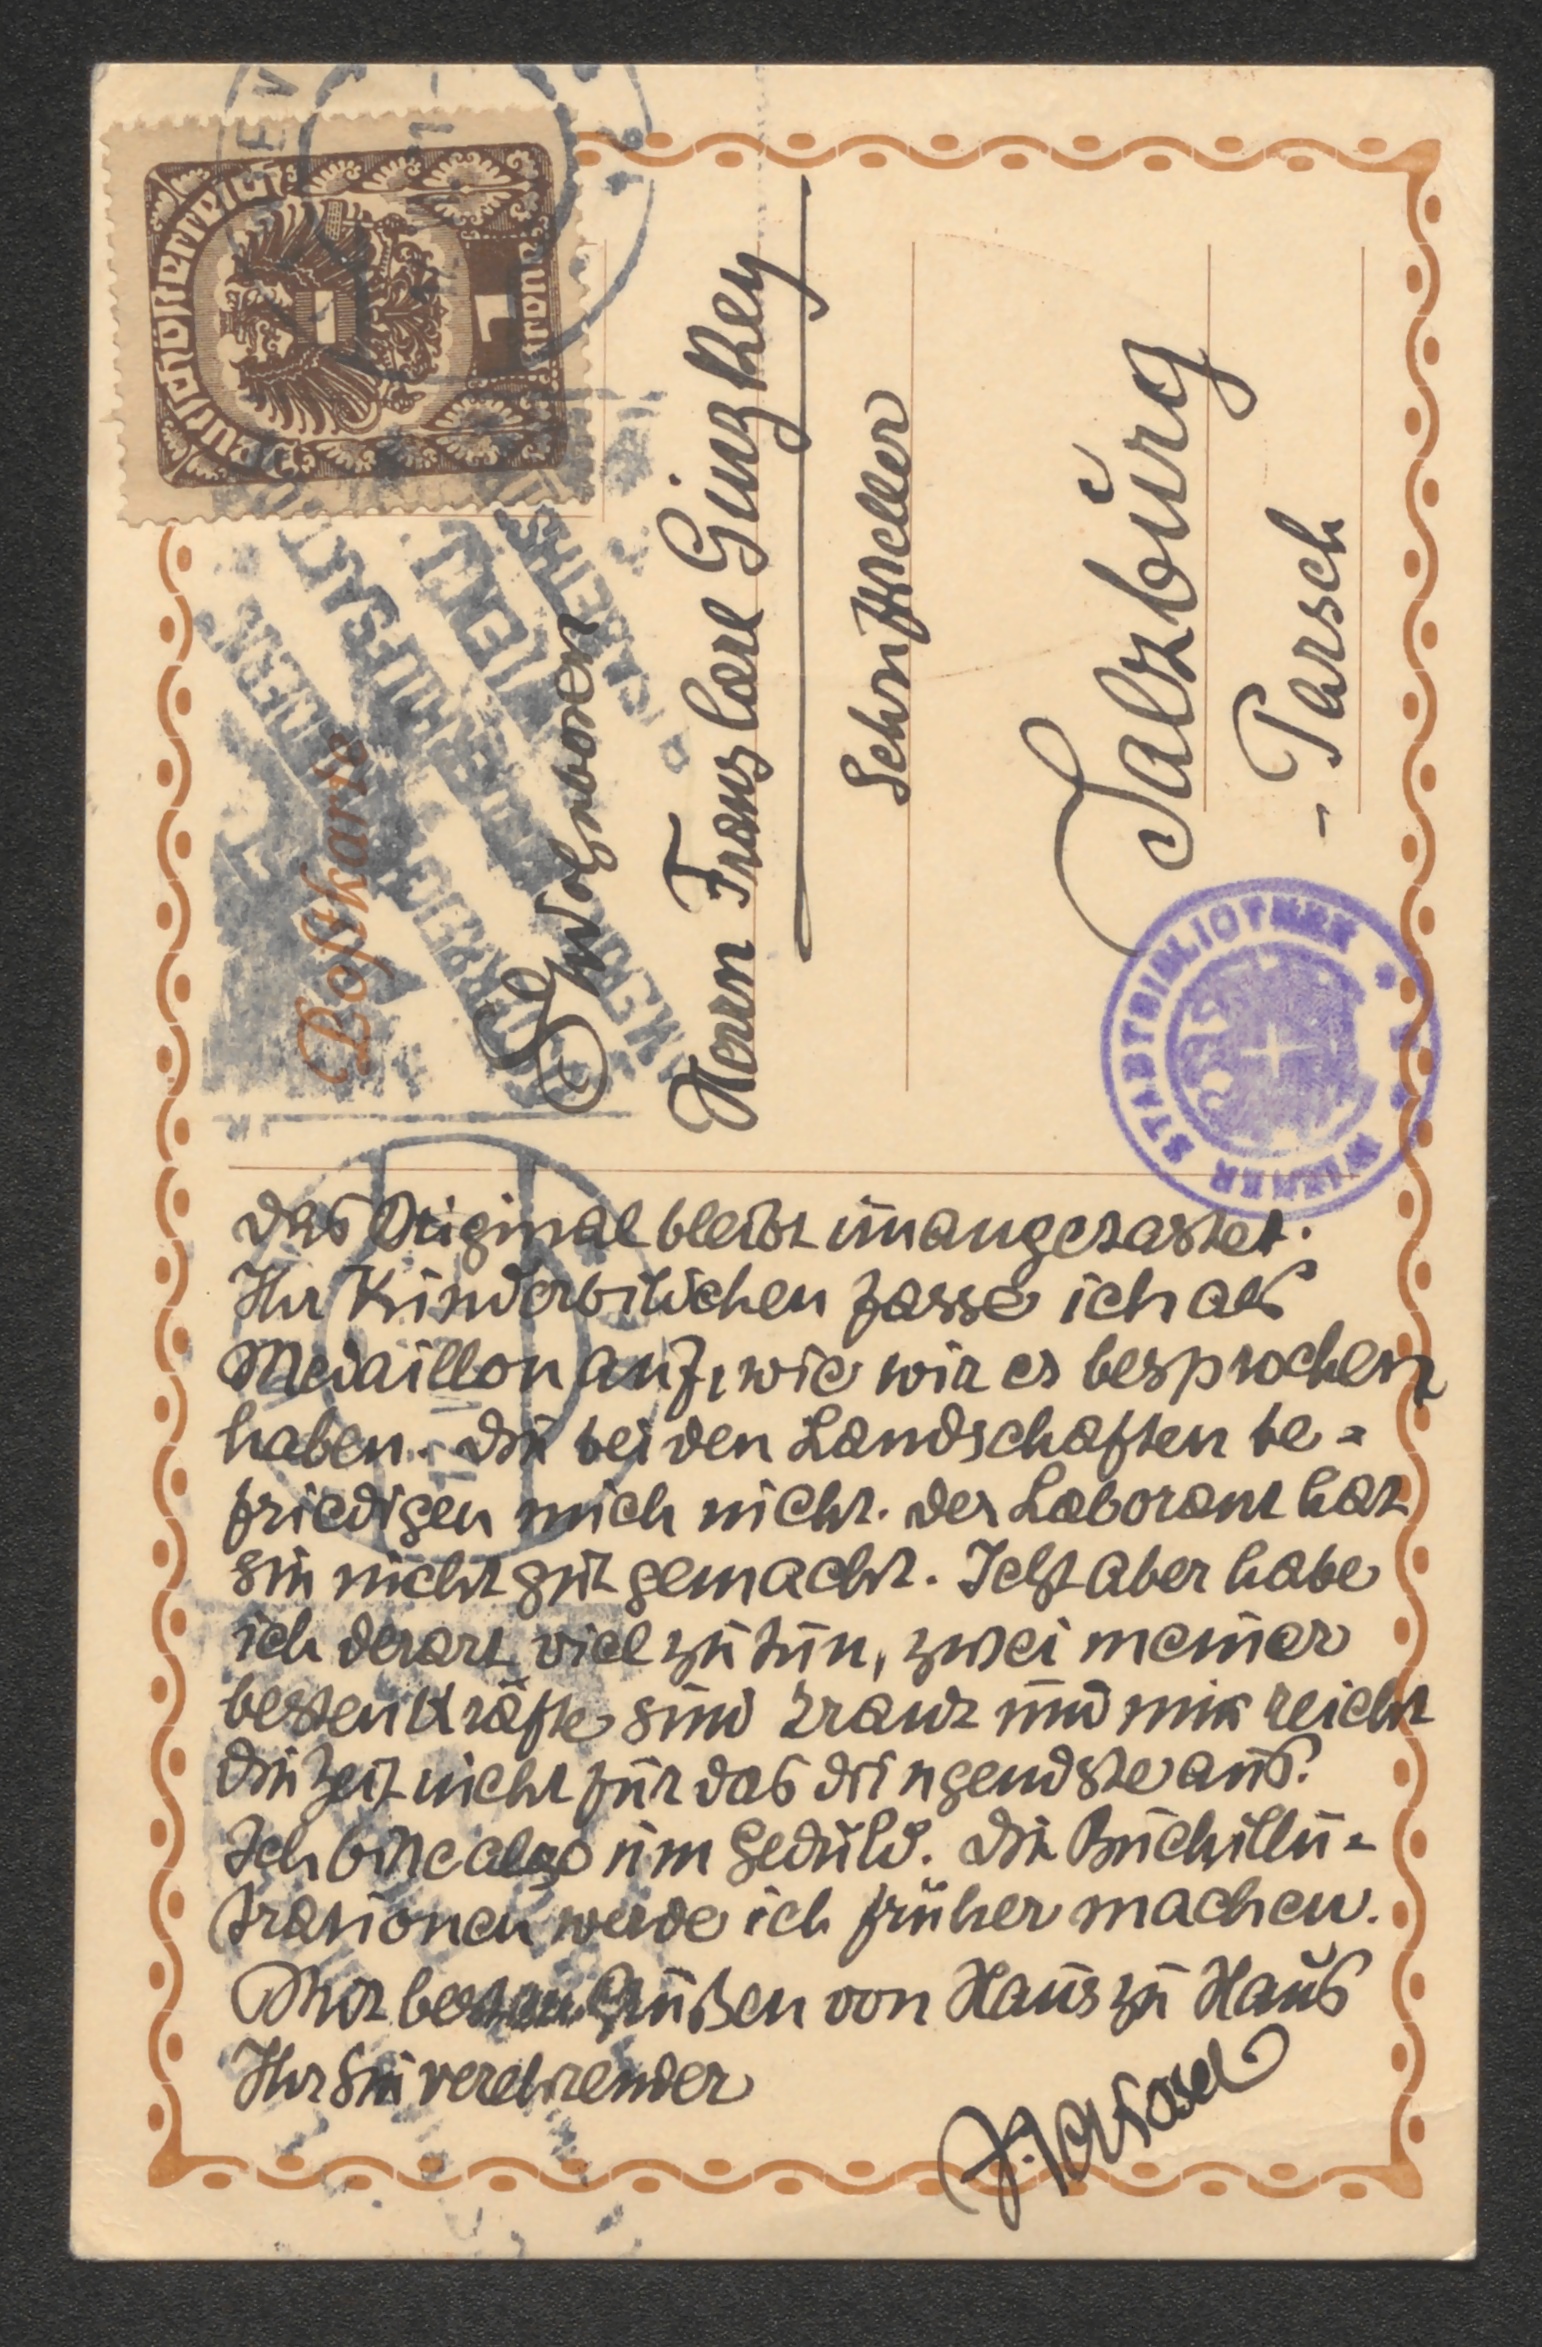 Deutschösterreich
1
Krone
Postkarte
S. Wolgeboren
Herrn Franz Carl Ginzkey
Schriftsteller
Salzburg
- Parsch
WIENER STADTBIBLIOTHEK
Das Original bleibt unangetastet.
Ihr Kinderbildchen fasse ich als
Medaillon auf, wie wir es besprochen
haben. Die beiden Landschaften be=
friedigen mich nicht. Der Laborant hat
sie nicht gut gemacht. Jetzt aber habe
ich derart viel zu tun, zwei meiner
besten Kräfte sind krank und mir reicht
die Zeit nicht für das dringendste aus.
Ich bitte also um Geduld. Die Buchillu=
strationen werde ich früher machen.
Mit besten Grüßen von Haus zu Haus
Ihr Sie verehrender